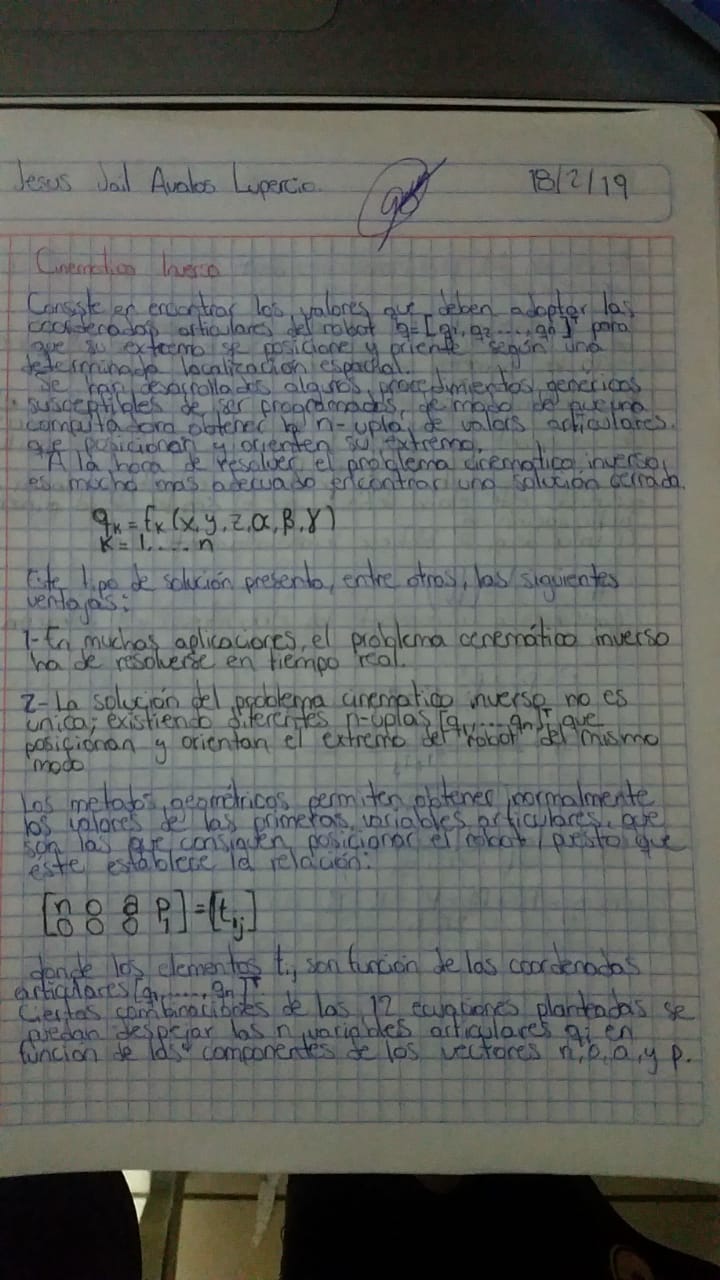 Jesus Jail Avalos Lupercio.
18/2/19
90
Cinematica Inversa
Consiste en encontrar los valores que deben adoptar las
coordenadas articulares del robot q=[q1, q2 ..., qn]T para
que su extremo se posicione y oriente según una
determinada localización espacial.
Se han desarrollados algunos procedimientos genericos
susceptibles de ser programados, de modo de que una
computadora obtener la n-upla de valors articulares.
que posicionan y orienten su extremo.
A la hora de resolver el problema cinematico inverso,
es mucho mas adecuado encontrar una solución cerrada.
qk = fk (x, y, z, α, β, γ)
K = 1, ... n
Este tipo de solución presenta, entre otros, las siguientes
ventajas:
1- En muchas aplicaciones, el problema cenemático inverso
ha de resolverse en tiempo real.
2- La solución del problema cinematico inverso no es
unica; existiendo diferentes n-uplas [q1, ... qn]T que
posicionan y orientan el extremo del robot del mismo
modo
Los metodos geométricos permiten obtener normalmente
los valores de las primeras variables articulares, que
son las que consiguen posicionar el robot, puesto que
este establece la relación:
[n o a p] = [tij]
0 0 0 1
donde los elementos tij son función de las coordenadas
articulares [q1, ..., qn]T
Ciertas combinaciones de las 12 ecuaciones planteadas se
puedan despejar las n variables articulares qi en
función de las componentes de los vectores n, o, a, y p.